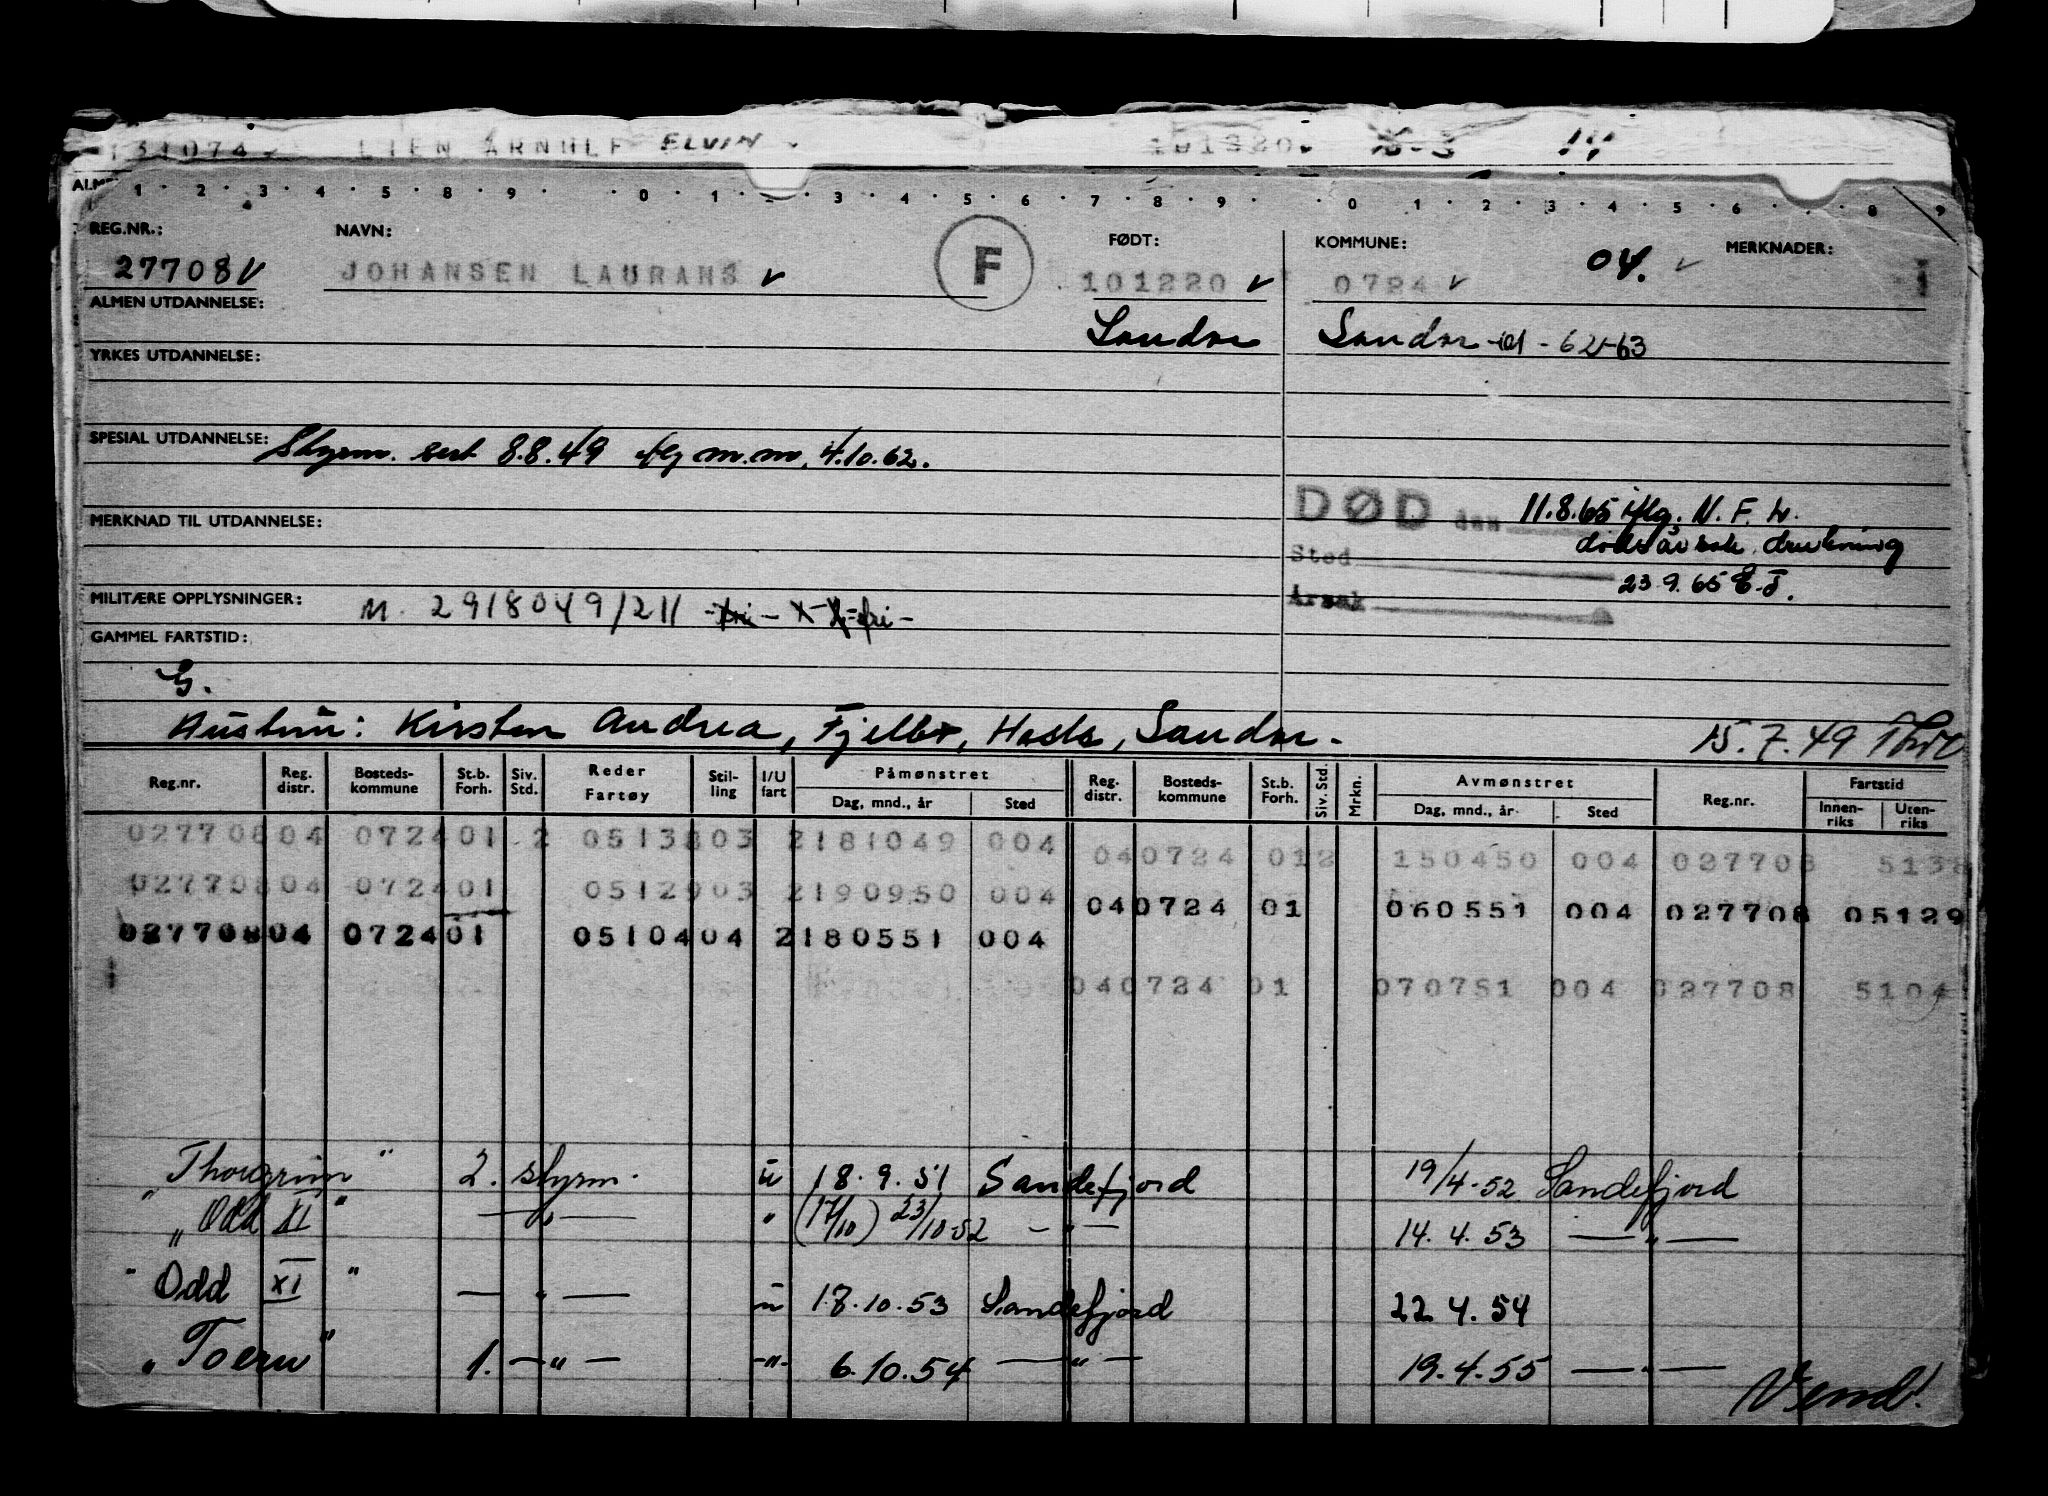 131074 LIEN ARNULF ELVIN 101220
1 · 2 · 3 · 4 · 5 · 8 · 9 · 0 · 1 · 2 · 3 · 4 · 5 · 6 · 7 · 8 · 9 · 0 · 1 · 2 · 3 · 4 · 5 · 6 · 8 · 9
REG.NR.: NAVN: FØDT: KOMMUNE: MERKNADER:
27708 v JOHANSEN LAURANS v F 101220 v 0724 v 04. v
ALMEN UTDANNELSE: Sandar Sandar id - 62-63
YRKES UTDANNELSE:
SPESIAL UTDANNELSE: Styrm. sert 8.8.49 flg m.m. 4.10.62.
DØD den 11.8.65 iflg. N.F.L.
MERKNAD TIL UTDANNELSE:
Sted dødsårsak drukning
Årsak 23.9.65 E.T.
MILITÆRE OPPLYSNINGER: M. 2918049/211
GAMMEL FARTSTID:
G.
Hustru: Kirsten Andrea, Fjellv, Hasle, Sandar. 15.7.49
Reg.nr. Reg. distr. Bosteds-kommune St.b. Forh. Siv. Std. Reder Fartøy Stil-ling I/U fart Påmønstret Dag, mnd., år Sted Reg. distr. Bosteds-kommune St.b. Forh. Siv. Std. Mrkn. Avmønstret Dag, mnd., år Sted Reg.nr. Fartstid Innen-riks Uten-riks
02770804 072401 2 0513803 2181049 004 040724 012 150450 004 027708 5138
02770804 072401 0512903 2190950 004 040724 01 060551 004 027708 05129
02770804 072401 0510404 2180551 004
040724 01 070751 004 027708 5104
"Thorgrim" 2. styrm. u 18.9.51 Sandefjord 19/4-52 Sandefjord
"Odd XI" — " — " (17/10) 23/10-52 — " — 14.4.53 — " —
"Odd XI" — " — u 18.10.53 Sandefjord 22.4.54
"Toern" 1. — " — -"- 6.10.54 — " — 19.4.55 — " —
Vend!